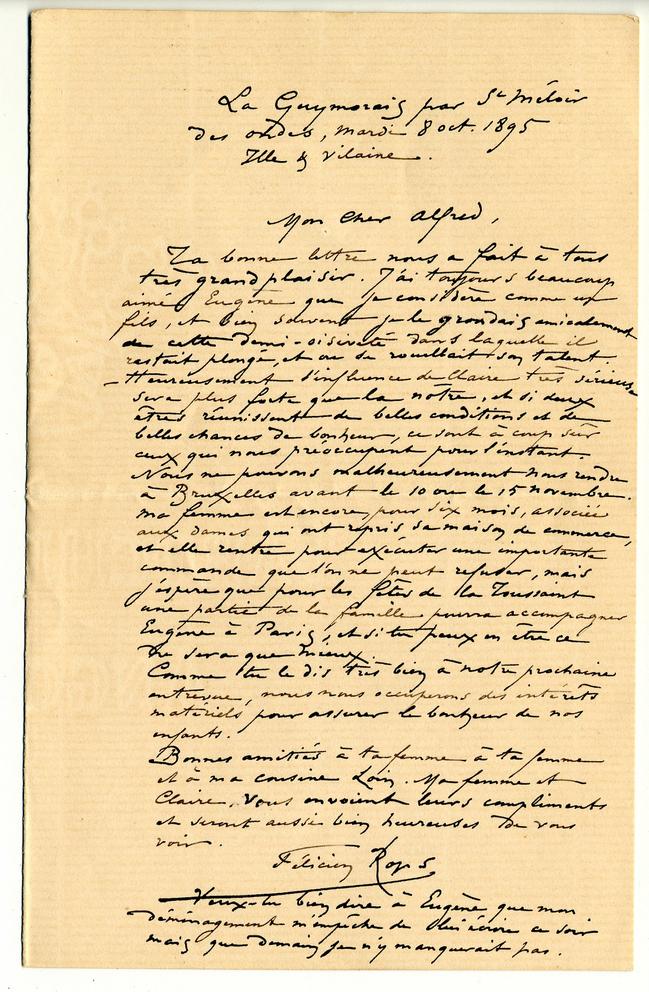 La Guymorais par St Méloir
des ondes, mardi 8 oct. 1895
Ille & Vilaine.
Mon Cher Alfred,
Ta bonne lettre nous a fait à tous
très grand plaisir. J'ai toujours beaucoup
aimé Eugène que je considère comme un
fils, et bien souvent je le grondais amicalement
de cette demi-oisiveté dans laquelle il
restait plongé, et où se rouillait son talent.
– Heureusement l'influence de Claire très sérieuse
sera plus forte que la nôtre, et si deux
êtres réunissent de belles conditions et de
belles chances de bonheur, ce sont à coup sûr
ceux qui nous préoccupent pour l'instant.
Nous ne pouvons malheureusement nous rendre
à Bruxelles avant le 10 ou le 15 novembre.
ma femme est encore pour six mois, associée
aux dames qui ont repris sa maison de commerce,
et elle rentre pour exécuter une importante
commande que l'on ne peut refuser, mais
j'espère que pour les fêtes de la Toussaint
une partie de la famille pourra accompagner
Eugène à Paris, et si tu peux en être ce
ne sera que mieux.
Comme tu le dis très bien à notre prochaine
entrevue, nous nous occuperons des intérêts
matériels pour assurer le bonheur de nos
enfants.
Bonnes amitiés à ta femme à ta femme
et à ma cousine . Ma femme et
Claire, vous envoient leurs compliments
et seront aussi bien heureuses de vous
voir.
Félicien Rops
Veux-tu bien dire à Eugène que mon
déménagement m'empêche de lui écrire ce soir
mais que demain je n'y manquerait pas.